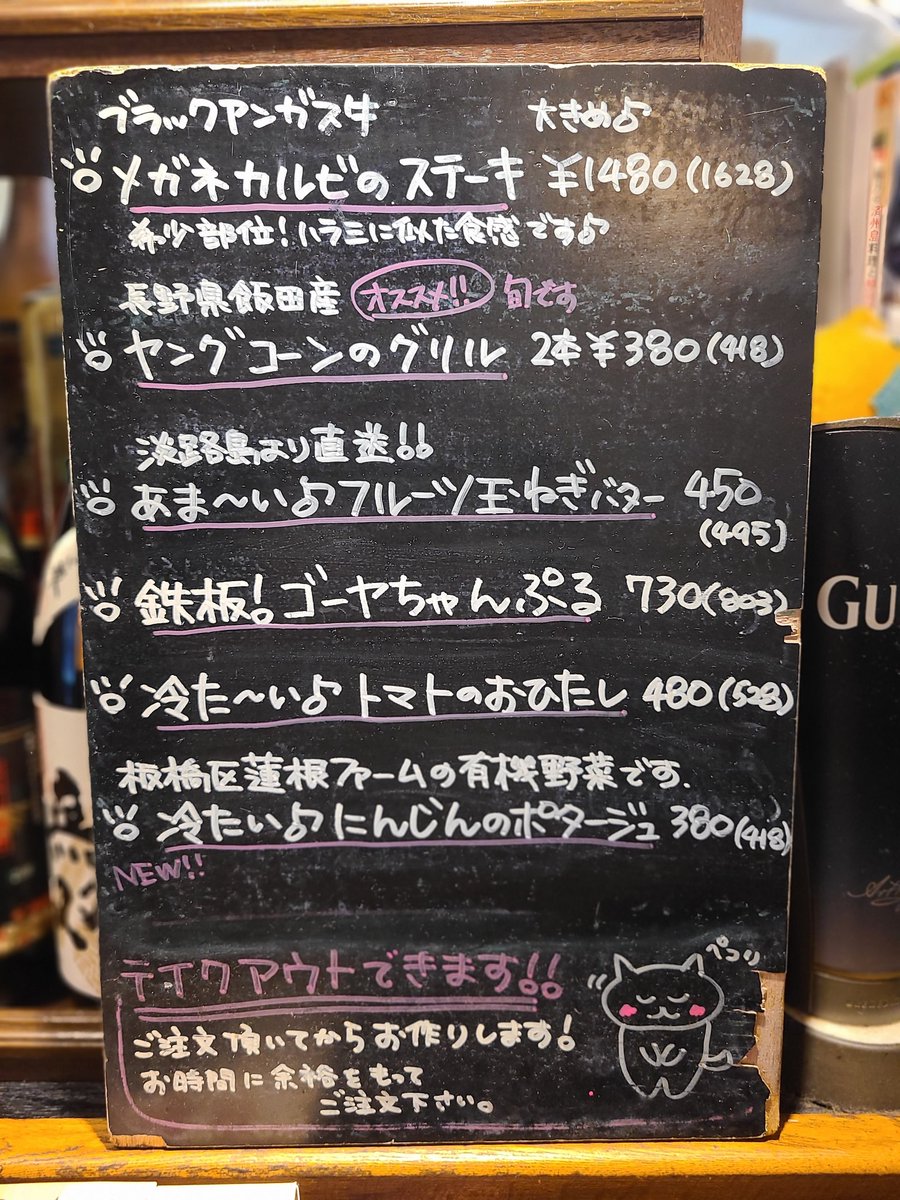 ブラックアンガス牛 大きめ♪
メガネカルビのステーキ ¥1480(1628)
希少部位！ハラミに似た食感です♪
長野県飯田産 オススメ!! 旬です
ヤングコーンのグリル 2本¥380(418)
淡路島より直送!!
あま〜い♪フルーツ玉ねぎバター 450
(495)
鉄板！ゴーヤちゃんぷる 730(803)
冷た〜い♪トマトのおひたし 480(528)
板橋区蓮根ファームの有機野菜です.
冷たい♪にんじんのポタージュ 380(418)
NEW!!
テイクアウトできます!!
ペコリ
ご注文頂いてからお作りします！
お時間に余裕をもって
ご注文下さい。
GU